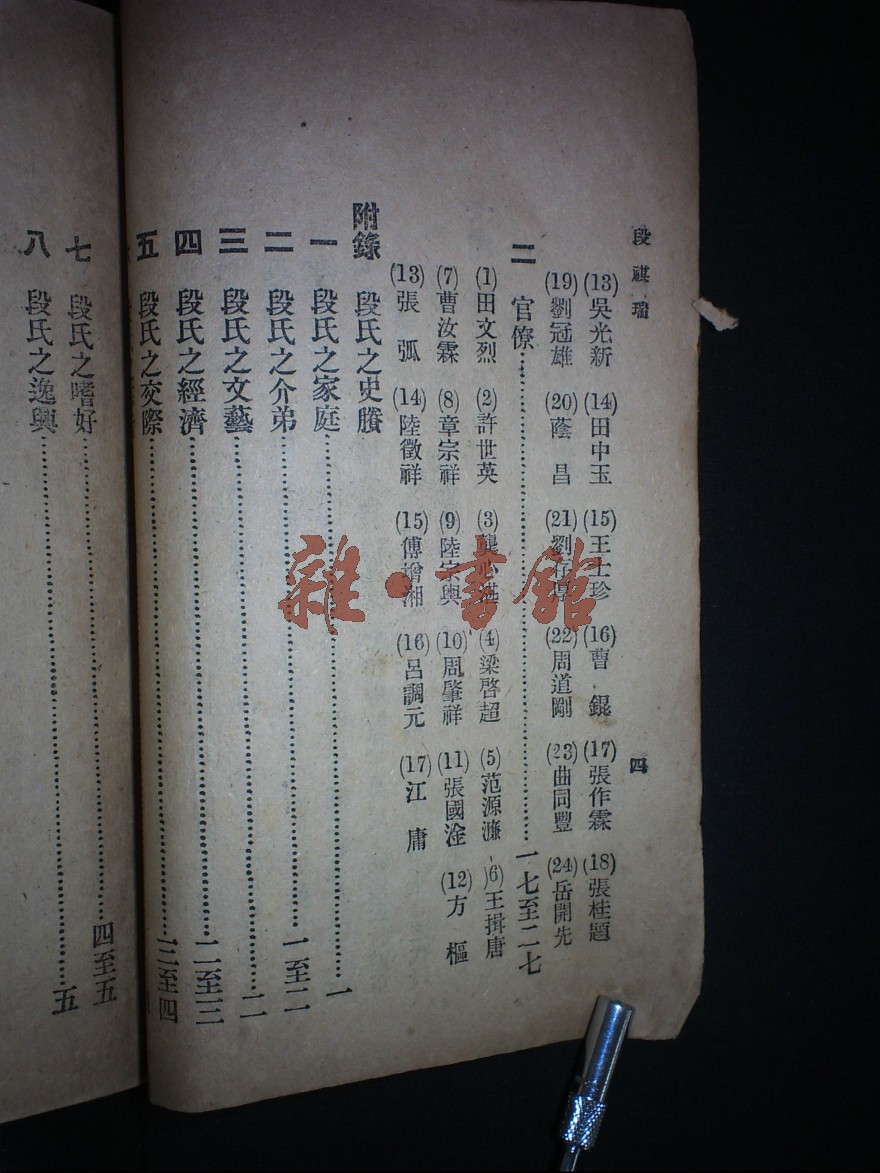 段祺瑞 四
(13)吳光新 (14)田中玉 (15)王士珍 (16)曹錕 (17)張作霖 (18)張桂題
(19)劉冠雄 (20)蔭昌 (21)劉存厚 (22)周道剛 (23)曲同豐 (24)岳開先
二 官僚……一七至二七
(1)田文烈 (2)許世英 (3)龔心湛 (4)梁啓超 (5)范源濂 (6)王揖唐
(7)曹汝霖 (8)章宗祥 (9)陸宗輿 (10)周肇祥 (11)張國淦 (12)方樞
(13)張弧 (14)陸徵祥 (15)傅增湘 (16)呂調元 (17)江庸
附錄 段氏之史賸
一 段氏之家庭……一
二 段氏之介弟……一至二
三 段氏之文藝……二
四 段氏之經濟……二至三
五 段氏之交際……三至四
七 段氏之嗜好……四至五
八 段氏之逸興……五
雜·書館